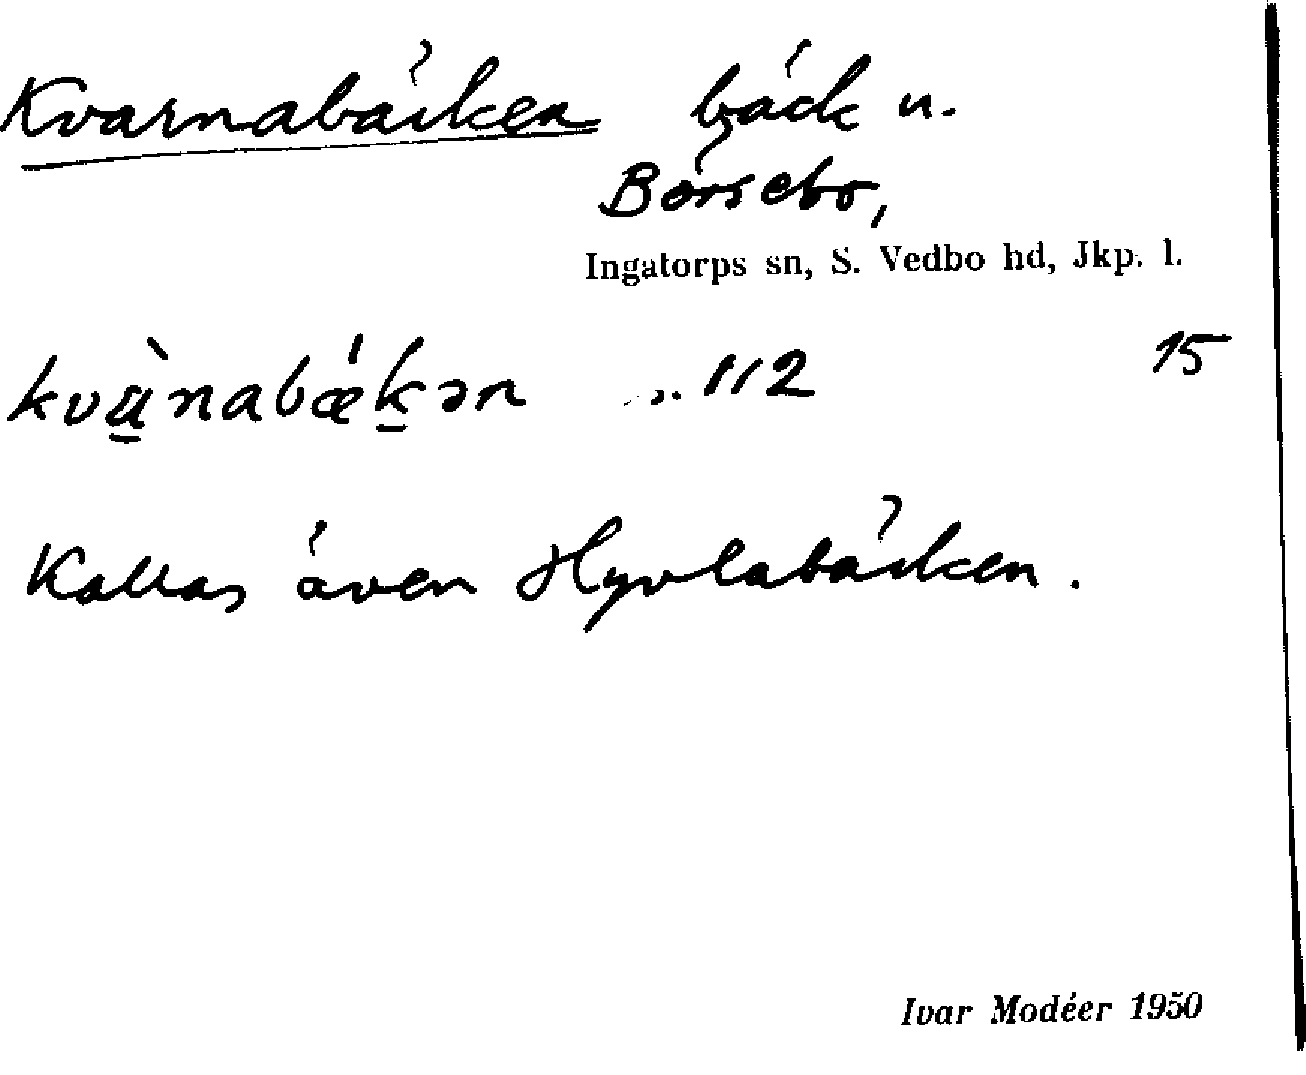 Kvarnabäcken bäck u.
Börsebo,
Ingatorps sn, S. Vedbo hd, Jkp. l.
kvànabǽkən ,,. 112 15
Kallas även Hyvlabäcken.
Ivar Modéer 1950